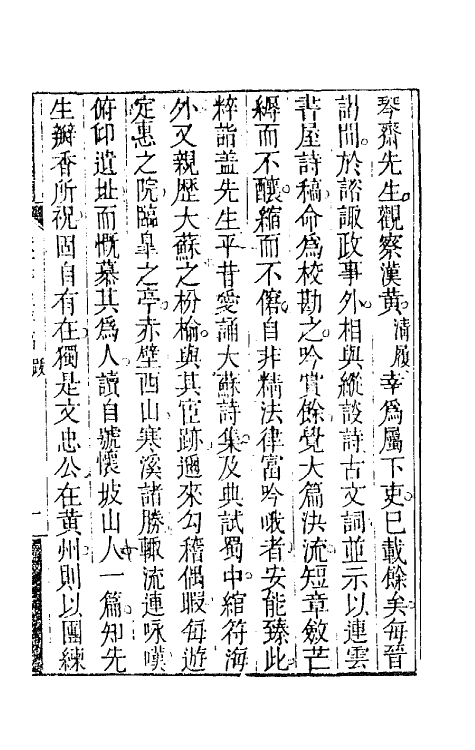 琴齋先生觀察漢黃清履幸為屬下吏已載餘矣每晉
謁間於諮諏政事外相與縱談詩古文詞並示以連雲
書屋詩稿命為校勘之吟賞餘覺大篇決流短章斂芒
縟而不釀縮而不窘自非精法律富吟哦者安能臻此
粹詣蓋先生平昔愛誦大蘇詩集及典試蜀中綰符海
外又親歷大蘇之枌榆與其宦跡邇來勾稽偶暇每遊
定惠之院臨皐之亭赤壁西山寒溪諸勝輒流連咏嘆
俯卬遺址而慨慕其為人讀自號懷坡山人一篇知先
生瓣香所祝固自有在獨是文忠公在黄州則以團練
跋
一